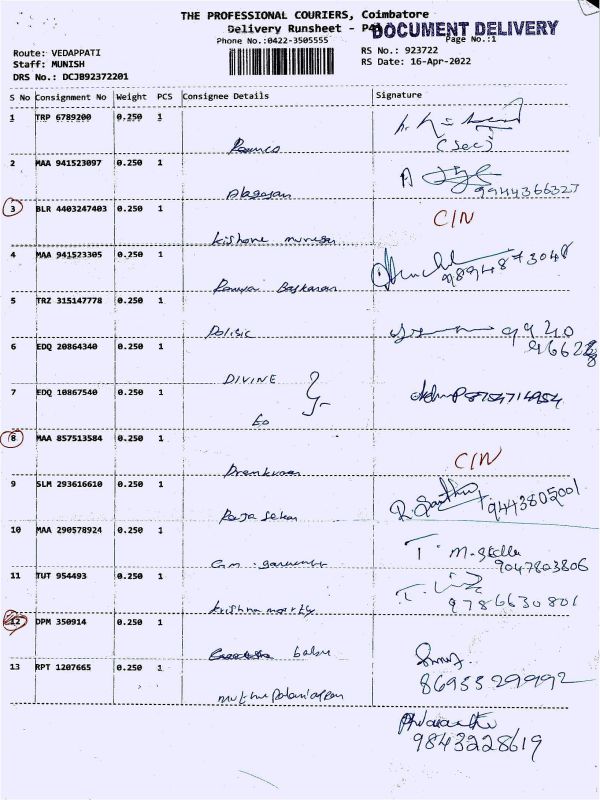 THE PROFESSIONAL COURIERS, Coimbatore
Delivery Runsheet - P4
DOCUMENT DELIVERY
Phone No.:0422-3505555
Page No.:1
Route: VEDAPPATI
RS No.: 923722
Staff: MUNISH
RS Date: 16-Apr-2022
DRS No.: DCJB92372201
S No Consignment No Weight PCS Consignee Details Signature
1 TRP 6789200 0.250 1
(Sec)
2 MAA 941523097 0.250 1
Alagesan
9944366327
3 BLR 4403247403 0.250 1
C/N
Kishore
4 MAA 941523305 0.250 1
Ramya Baskaran
5 TRZ 315147778 0.250 1
6 EDQ 20864340 0.250 1
DIVINE
7 EDQ 10867540 0.250 1
8754714954
8 MAA 857513584 0.250 1
C/N
9 SLM 293616610 0.250 1
Raja Sekar
9443805001
10 MAA 290578924 0.250 1
T. M. Stella
9047803806
11 TUT 954493 0.250 1
Krishna moorthy
9786630801
12 DPM 350914 0.250 1
babu
13 RPT 1207665 0.250 1
8695329992
muthu Palaniappan
9843228619